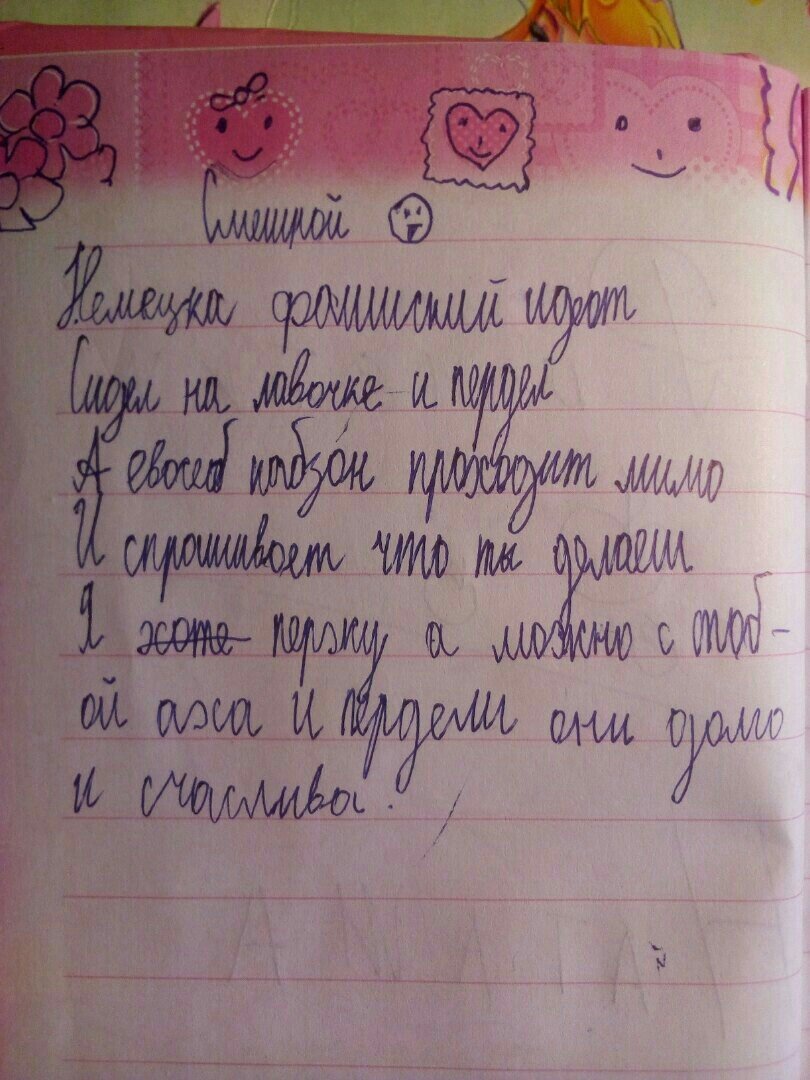 Смешной
Немецка фашиский идеот
Сидел на лавочке и пердел
А кобзон проходит мимо
И спрашивает что ты делаеш
Я хоте пержку а можно с тоб-
ой аха и пердели они долго
и счаслива.